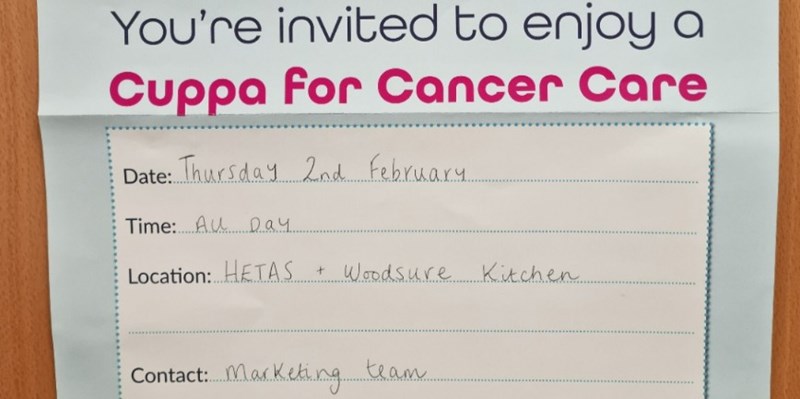 You're invited to enjoy a
Cuppa for Cancer Care
Date: Thursday 2nd February
Time: All Day
Location: HETAS + Woodsure Kitchen
Contact: Marketing team